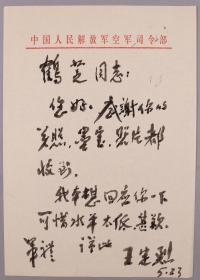 中国人民解放军空军司令部
鹤芝同志：
您好。感谢你的
关照，墨宝、照片都
收到。
我本想回意你一下
可惜水平太低，
军礼
王定烈
5.23